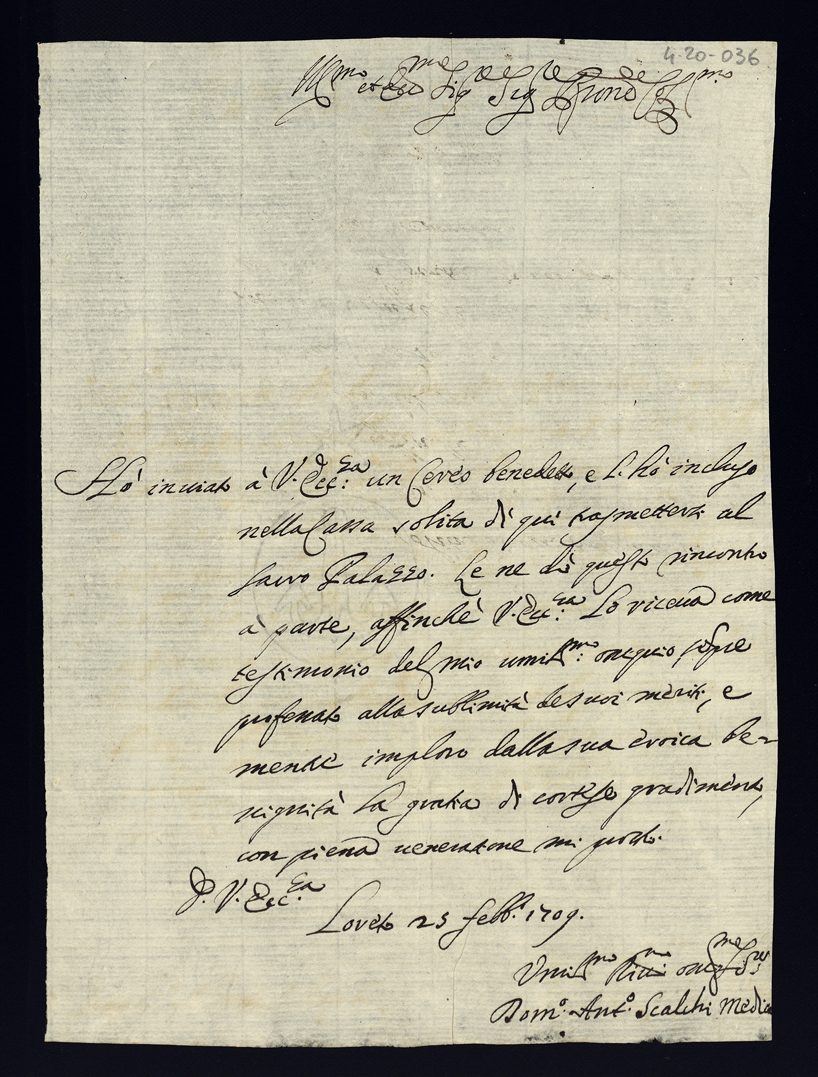 4-20-036
Ill.mo et Ecc.mo Sig.re Sig.re Prone Col.mo
Hò inuiato à V. Ecc:za un Cereo benedetto, e l'hò incluso
nella Cassa solita di quì trasmettersi al
Sacro Palazzo. Le ne dò questo rincontro
à parte, affinchè V. Ecc:za Lo riceua come
testimonio del mio umil.mo: ossequio sẽpre
professato alla sublimità de suoi meriti, e
mentre imploro dalla sua eroica be-
nignità la gratia di cortese gradimento,
con piena ueneratione mi porto.
D. V. Ecc.za
Loreto 25 Febb.o 1709.
Umil.mo
Dom.o Ant.o Scalchi Medic